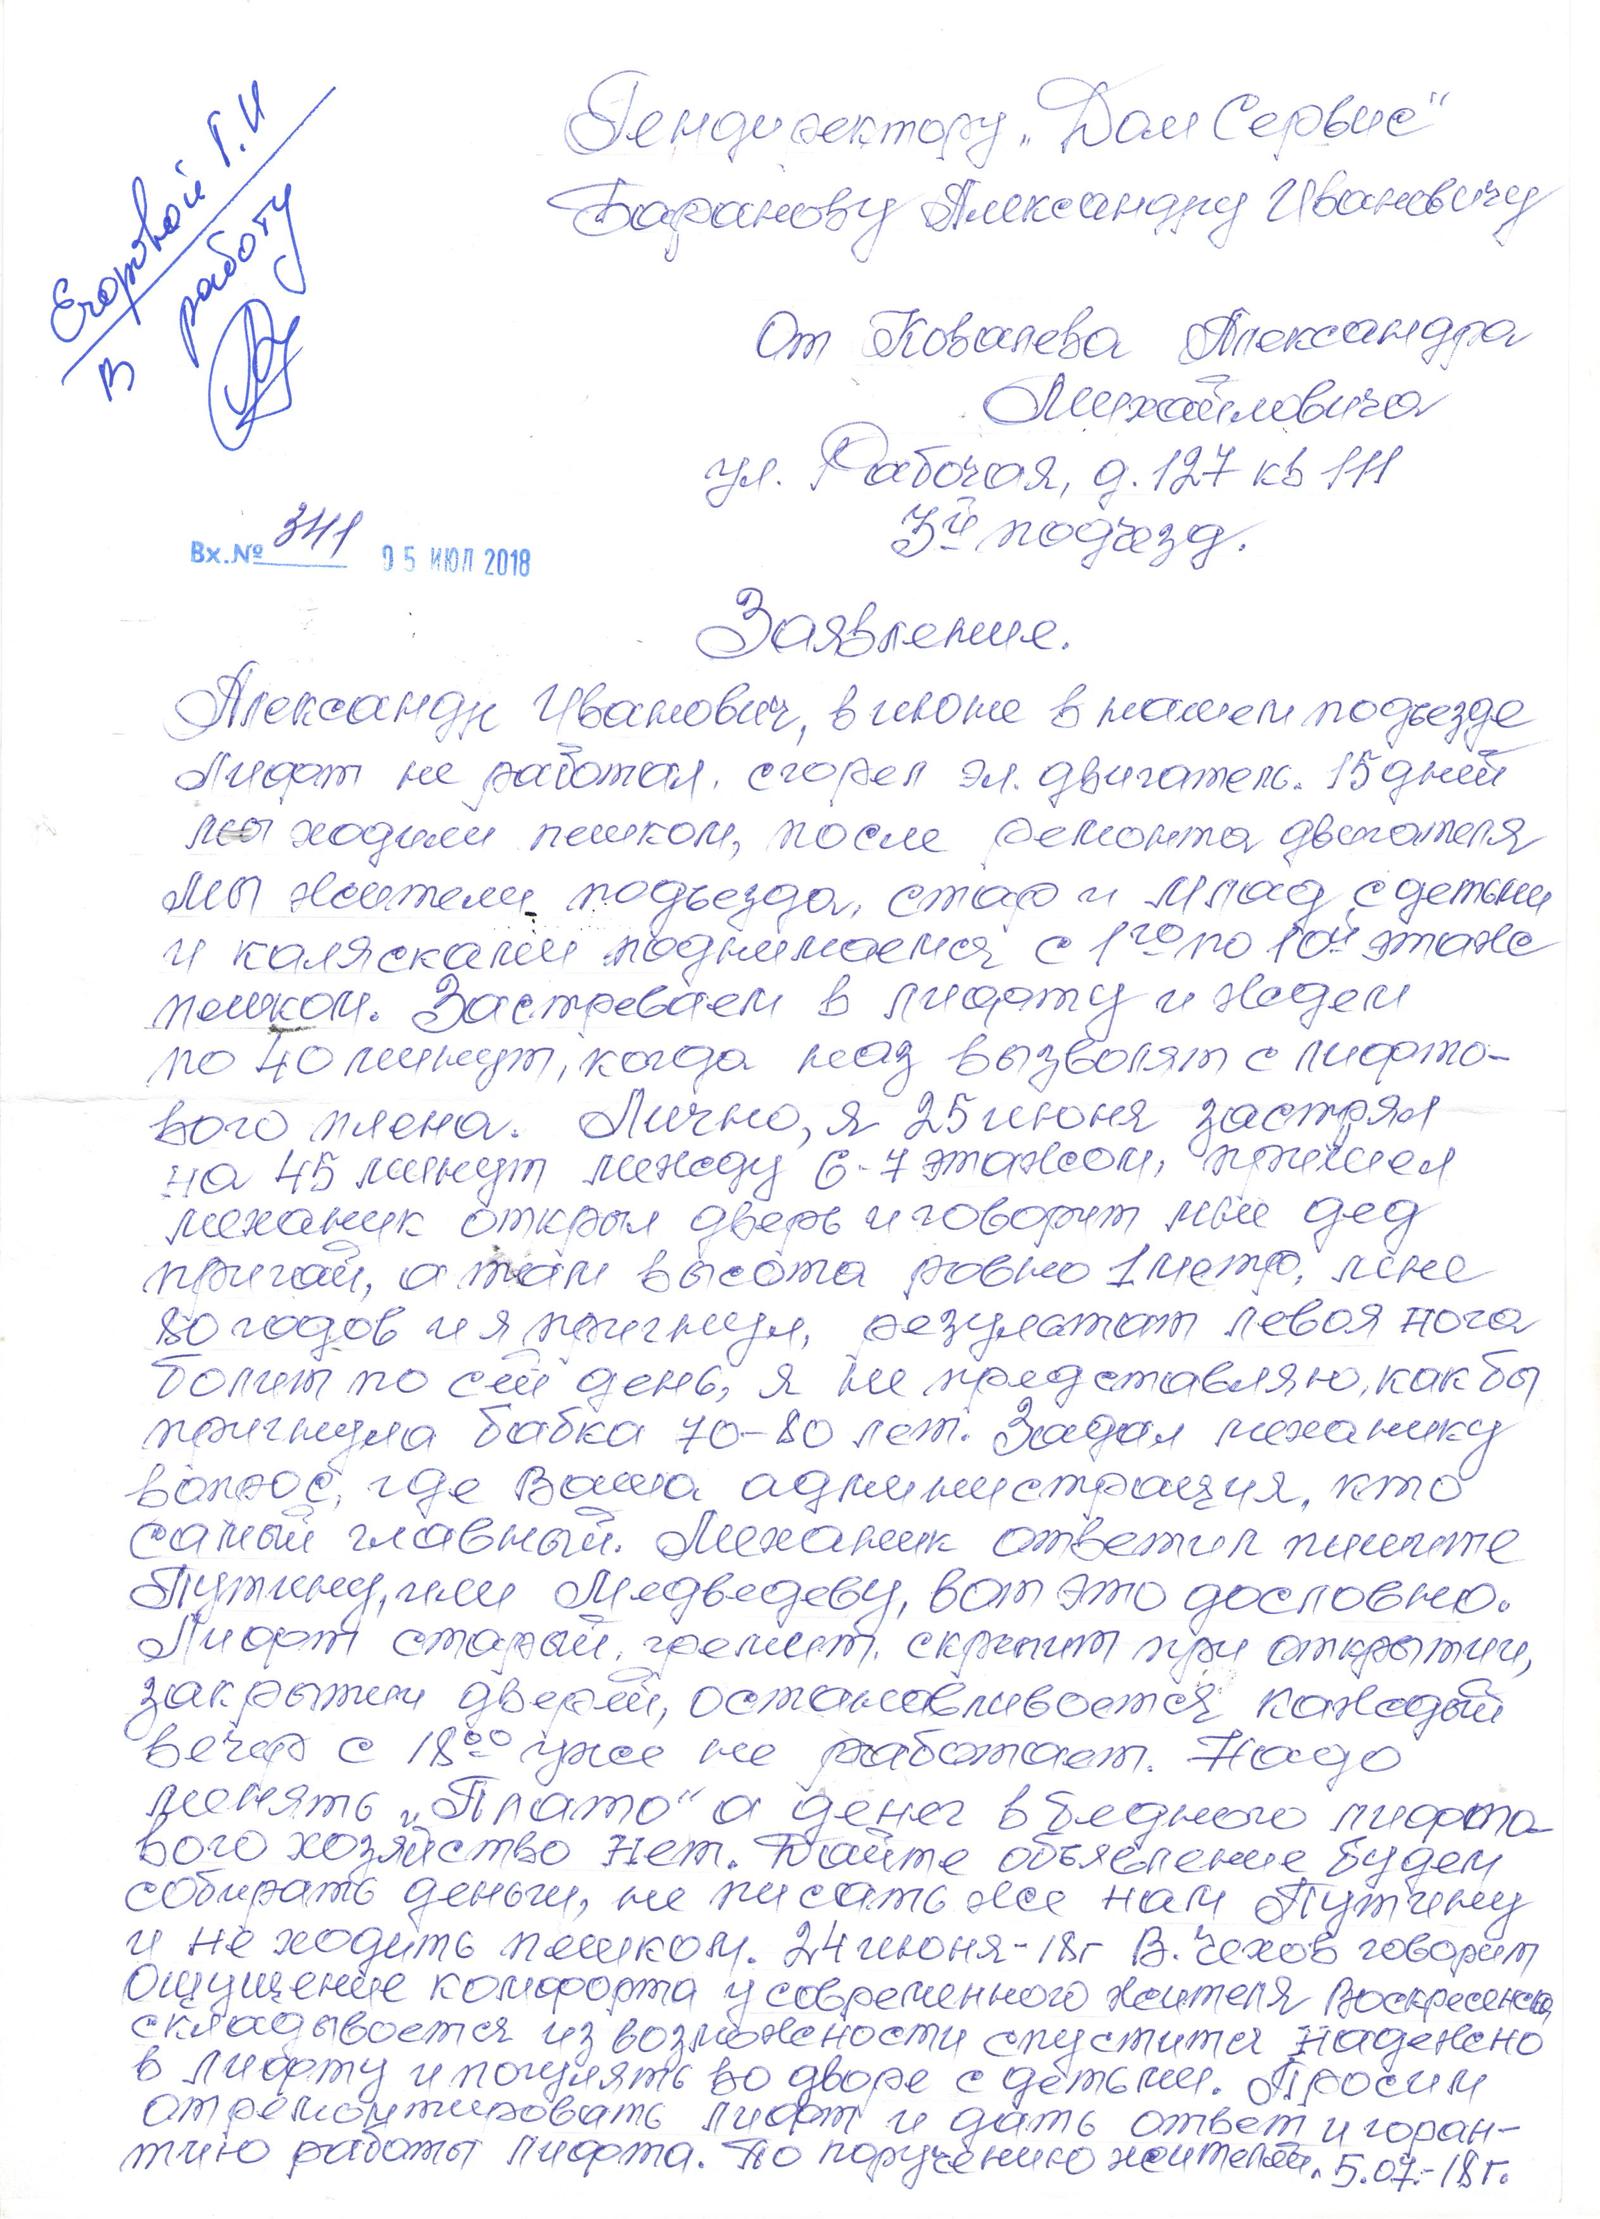 Егоровой Г.И
в работу
Гендиректору „Дом Сервис"
Баранову Александру Ивановичу
От Ковалева Александра
Михайловича
ул. Рабочая, д. 127 кв 111
3й подъезд.
Вх.№ 341 05 ИЮЛ 2018
Заявление.
Александр Иванович, в июне в нашем подъезде
Лифт не работал, сгорел эл. двигатель. 15 дней
мы ходили пешком, после ремонта двигателя
мы жители подъезда, стар и млад, с детьми
и калясками поднимаемся с 1го по 10й этаж
пешком. Застреваем в лифту и ждем
по 40 минут, когда наз вызволят с лифто-
вого плена. Лично, я 25 июня застрял
на 45 минут между 6-7 этажом, пришел
механик открыл дверь и говорит мне дед
пригай, а там высота ровно 1 метр, мне
80 годов и я пригнул, результат левоя нога
болит по сей день, я не представляю, как бы
пригнула бабка 70-80 лет. Задал механику
вопрос, где Ваша администрация, кто
самый главный. Механик ответил пишите
Путину, или Медведеву, вот это дословно.
Лифт старый, гремит, скрипит при открытии,
закрытии дверей, останавливается каждый
вечер с 18оо уже не работает. Надо
менять „Плато" а денег в бедного лифта-
вого хозяйство нет. Дайте объявление будем
собирать деньги, не писать же нам Путину
и не ходить пешком. 24 июня-18г В. Чехов говорит
Ощущение комфорта у современного жителя Воскресенска
складывается из возможности спустится надежно
в лифту и погулять во дворе с детьми. Просим
отремонтировать лифт и дать ответ и горан-
тию работы лифта. По поручению жителей. 5.07.-18г.